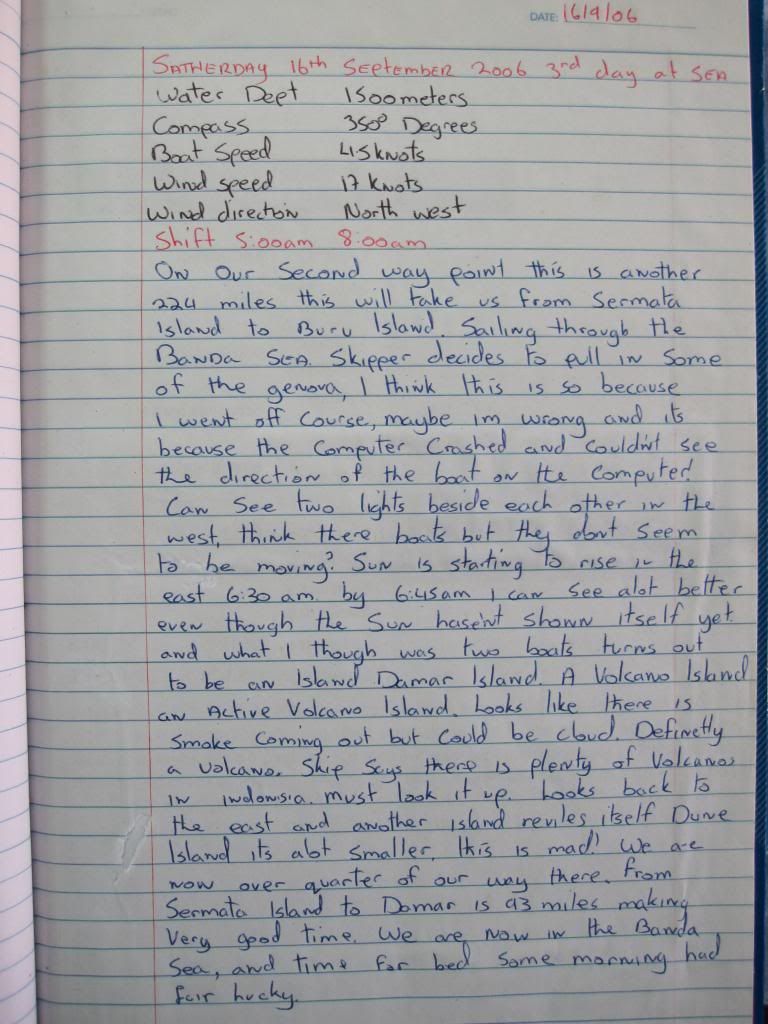 DATE: 16/9/06
SATHERDAY 16th September 2006 3rd day at SEA
Water Dept 1500meters
Compass 350° Degrees
Boat Speed 4.5knots
Wind speed 17 Knots
Wind direction North west
Shift 5:00am 8:00am
On Our Second way point this is another
224 miles this will take us from Sermata
Island to Buru Island. Sailing through the
BANDA SEA. Skipper decides to pull in some
of the genova, I think this is so because
I went off course, maybe im wrong and its
because the Computer Crashed and couldn't see
the direction of the boat on the computer!
Can See two lights beside each other in the
west, think there boats but they dont seem
to be moving? Sun is starting to rise in the
east 6:30 am. by 6:45am I can see alot better
even though the Sun hase'nt shown itself yet.
and what I though was two boats turns out
to be an Island Damar Island. A Volcano Island
an Active Volcano Island. Looks like there is
Smoke coming out but could be cloud. Definetly
a volcano. Skip Says there is plenty of Volcanos
in indonisia. must look it up. Looks back to
the east and another island reviles itself
Island its alot smaller, this is mad! We are
now over quarter of our way there. From
Sermata Island to Domar is 93 miles making
Very good time. We are now in the Banda
Sea, and time for bed some morning had
fair lucky.